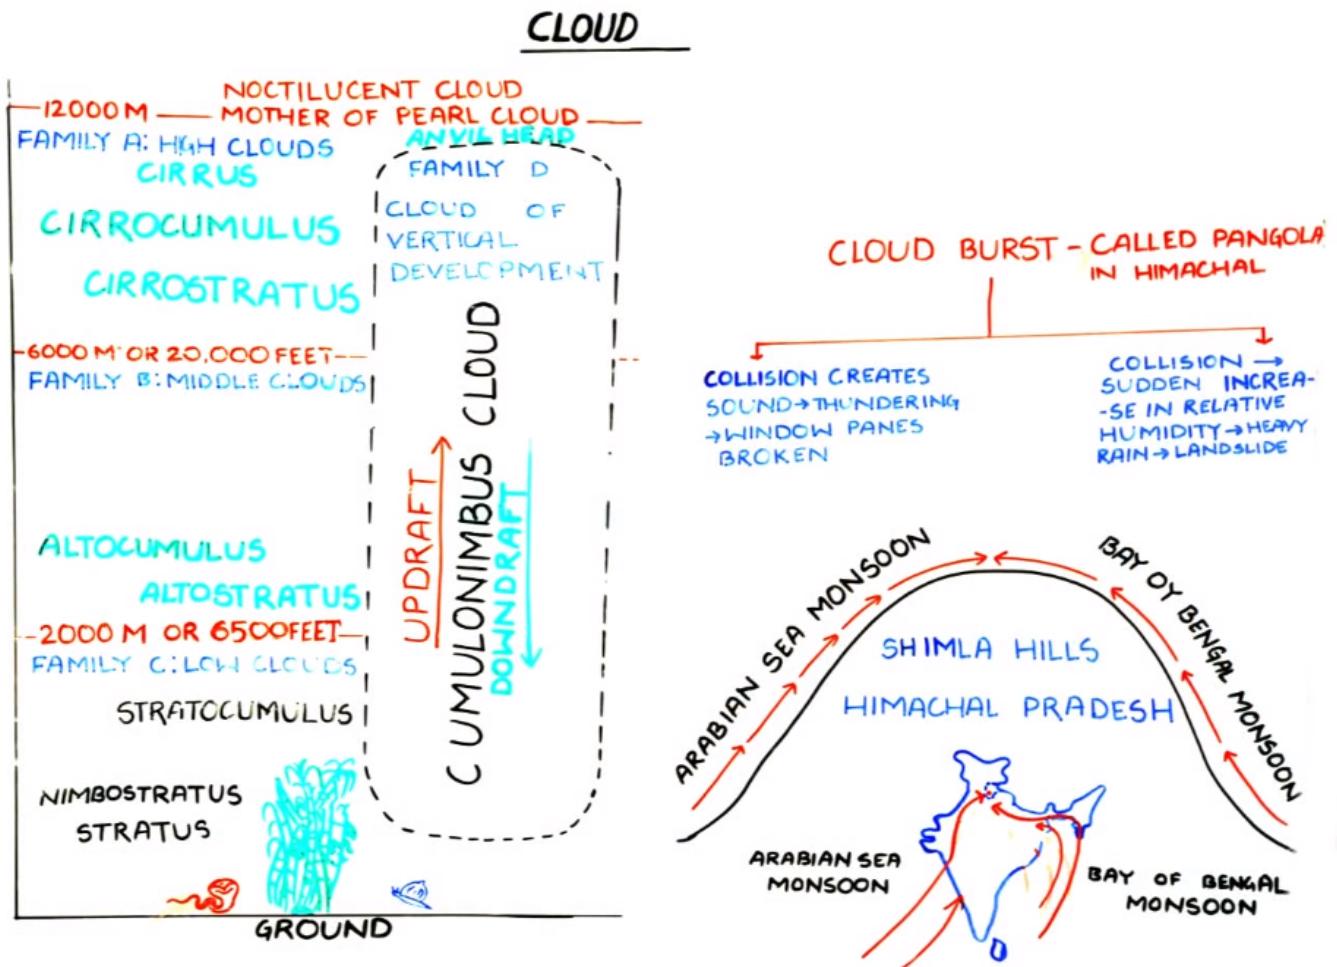 CLOUD
NOCTILUCENT CLOUD
12000 M
MOTHER OF PEARL CLOUD
FAMILY A: HGH CLOUDS
CIRRUS
CIRROCUMULUS
CIRROSTRATUS
ANVIL HEAD
FAMILY D
CLOUD OF
VERTICAL
DEVELOPMENT
6000 M OR 20,000 FEET
FAMILY B: MIDDLE CLOUDS
ALTOCUMULUS
ALTOSTRATUS
2000 M OR 6500FEET
FAMILY C: LOW CLOUDS
STRATOCUMULUS
NIMBOSTRATUS
STRATUS
UPDRAFT
CUMULONIMBUS CLOUD
DOWNDRAFT
GROUND
CLOUD BURST - CALLED PANGOLA
IN HIMACHAL
COLLISION CREATES
SOUND → THUNDERING
→ WINDOW PANES
BROKEN
COLLISION →
SUDDEN INCREA-
-SE IN RELATIVE
HUMIDITY → HEAVY
RAIN → LANDSLIDE
ARABIAN SEA MONSOON
BAY OY BENGAL MONSOON
SHIMLA HILLS
HIMACHAL PRADESH
ARABIAN SEA
MONSOON
BAY OF BENGAL
MONSOON